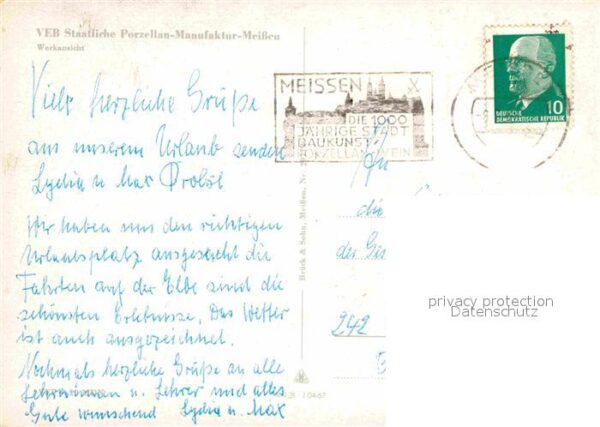 VEB Staatliche Porzellan-Manufaktur-Meißen
Werkansicht
Viele herzliche Grüße
aus unserem Urlaub senden
Lydia u. Max
Wir haben uns den richtigen
Urlaubsplatz ausgesucht die
Fahrten auf der Elbe sind die
schönsten Erlebnisse. Das Wetter
ist auch ausgezeichnet.
Nochmals herzliche Grüße an alle
Lehrerinnen u. Lehrer und alles
Gute wünschend Lydia u. Max
Brück & Sohn, Meißen
MEISSEN
DIE 1000
JÄHRIGE STADT
BAUKUNST
PORZELLAN WEIN
10
DEUTSCHE
DEMOKRATISCHE REPUBLIK
An
die
der
242
privacy protection
Datenschutz